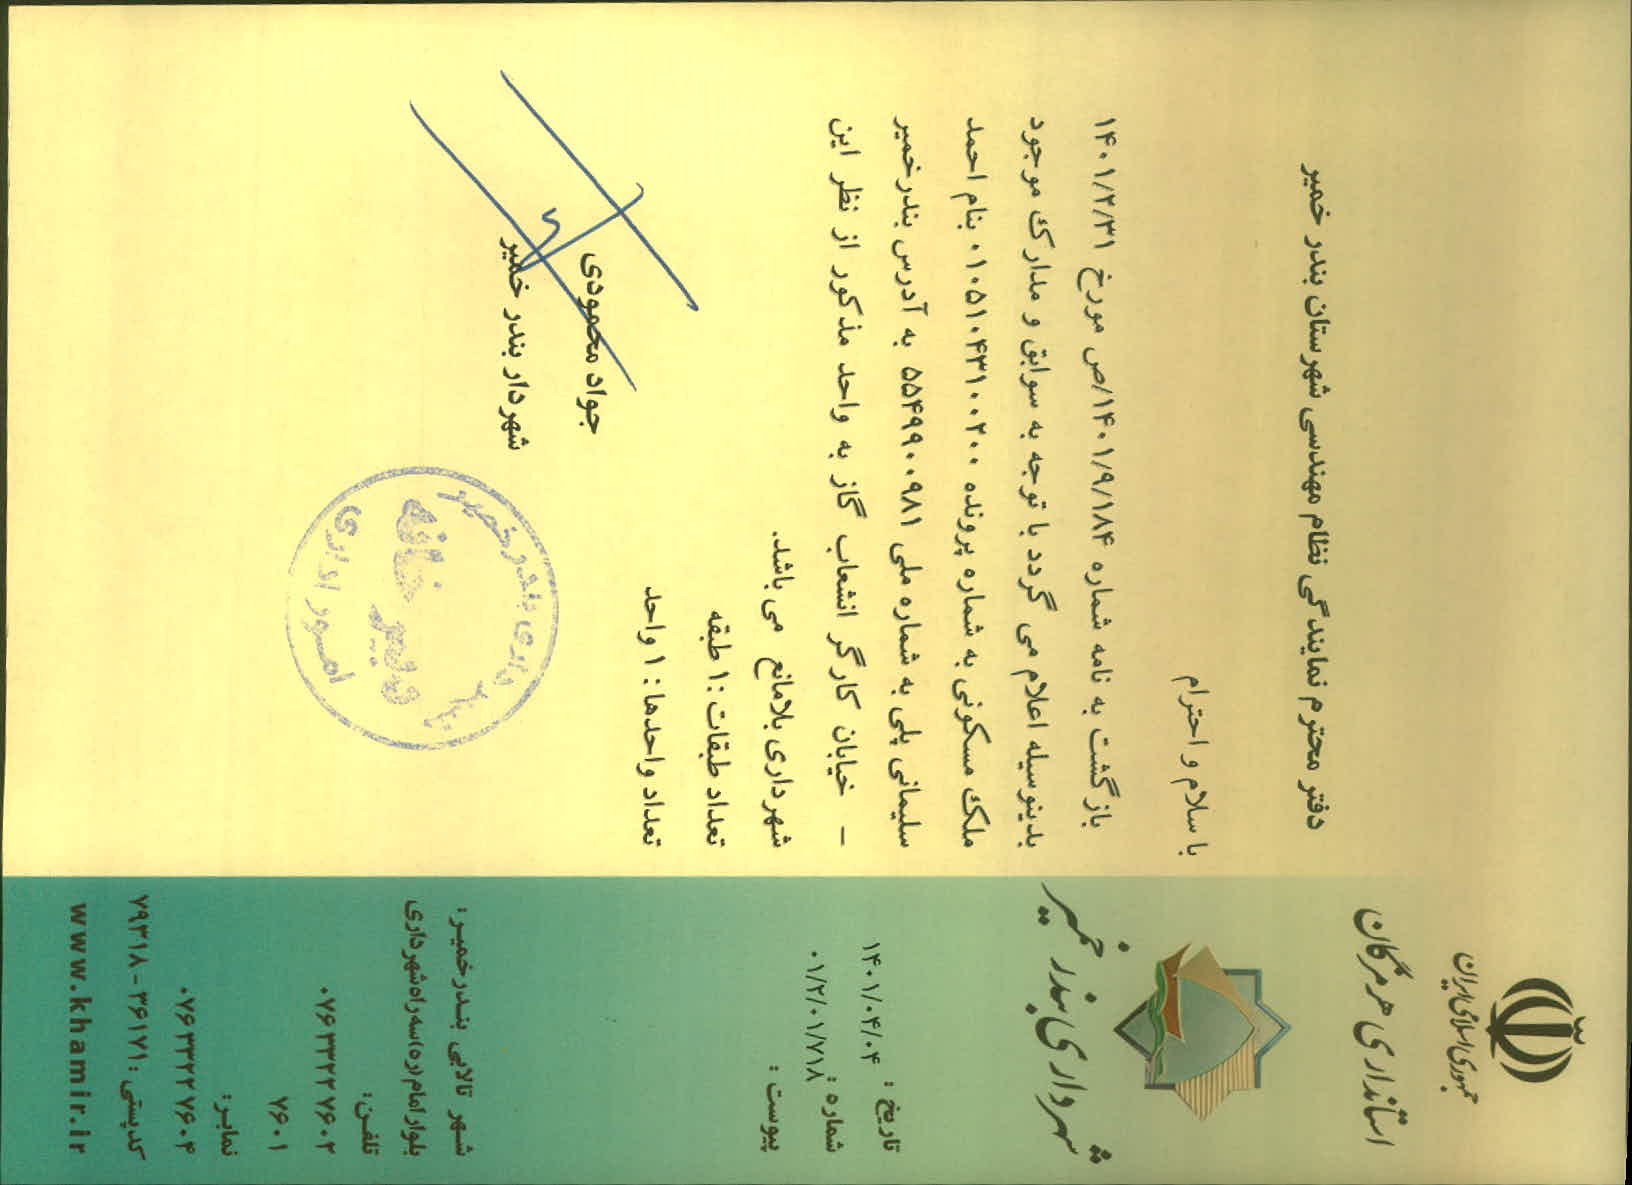 جمهوری اسلامی ایران
استانداری هرمزگان
شهرداری بندر خمیر
تاریخ : ۱۴۰۱/۰۴/۰۴
شماره : ۰۱/۲/۰۱/۷۱۸
پیوست :
دفتر محترم نمایندگی نظام مهندسی شهرستان بندر خمیر
با سلام و احترام
بازگشت به نامه شماره ۱۴۰۱/۹/۱۸۴/ص مورخ ۱۴۰۱/۲/۳۱
بدینوسیله اعلام می گردد با توجه به سوابق و مدارک موجود
ملک مسکونی به شماره پرونده ۰۱۰۵۱۰۴۳۱۰۰۲۰۰ بنام احمد
سلیمانی پلی به شماره ملی ۵۵۴۹۹۰۰۹۸۱ به آدرس بندرخمیر
- خیابان کارگر انشعاب گاز به واحد مذکور از نظر این
شهرداری بلامانع می باشد.
تعداد طبقات : ۱ طبقه
تعداد واحدها : ۱ واحد
جواد محمودی
شهردار بندر خمیر
شهرداری بندر خمیر
دبیرخانه
امور اداری
شهر تالابی بندرخمیر:
بلوار امام(ره)سه راه شهرداری
تلفن:
۰۷۶۳۳۲۲۷۶۰۲
۷۶۰۱
نمابر:
۰۷۶۳۳۲۲۷۶۰۴
کدپستی : ۳۶۱۷۱ - ۷۹۳۱۸
www.khamir.ir